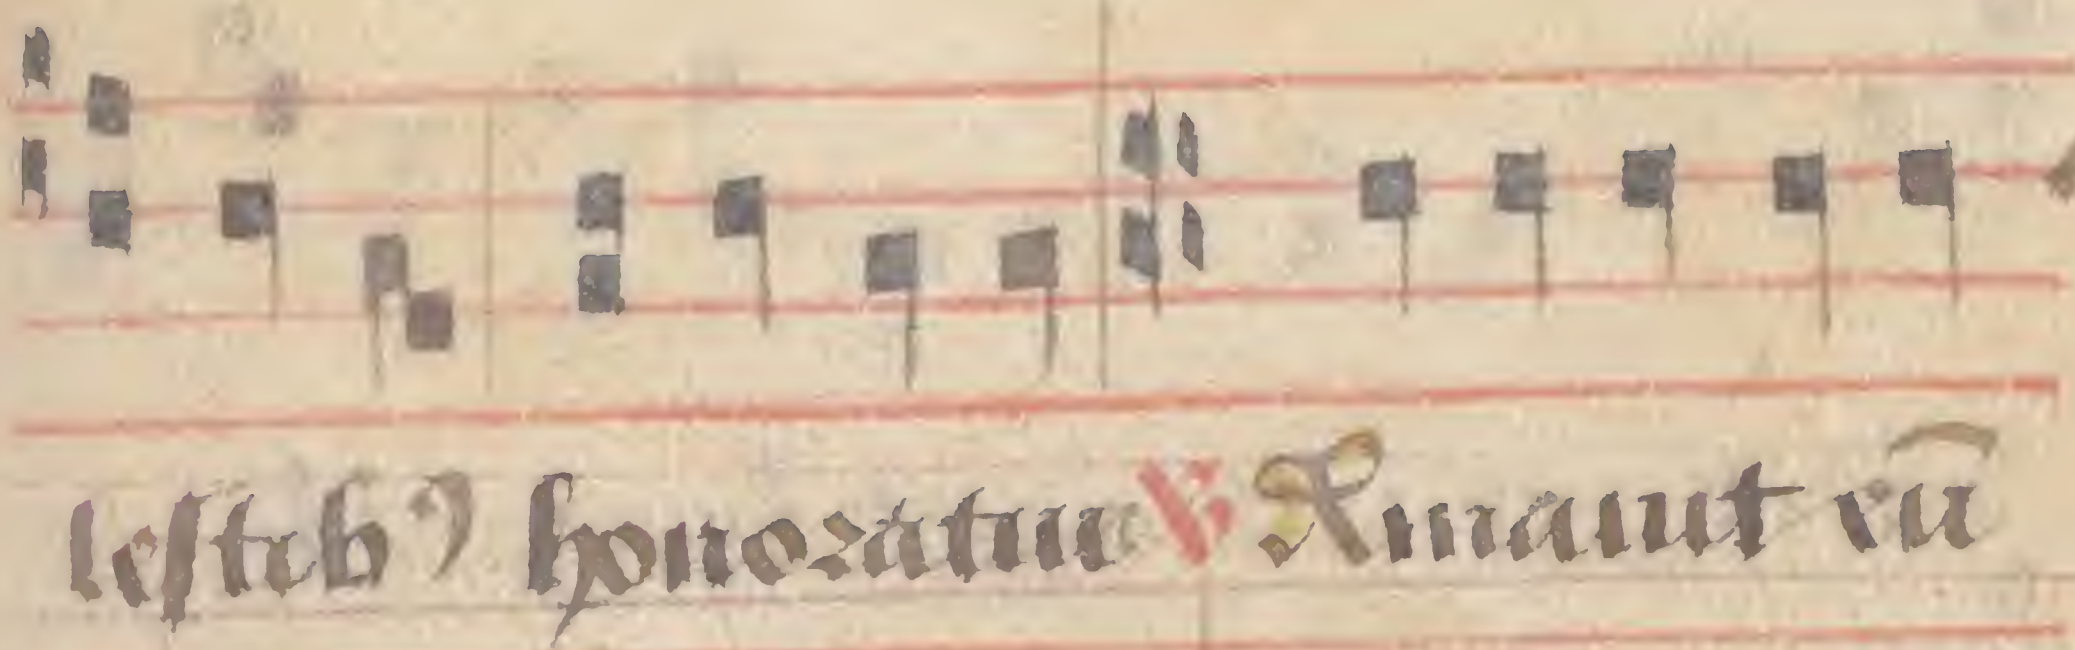 lestib⁹ honoratur ℣ Amauit eū